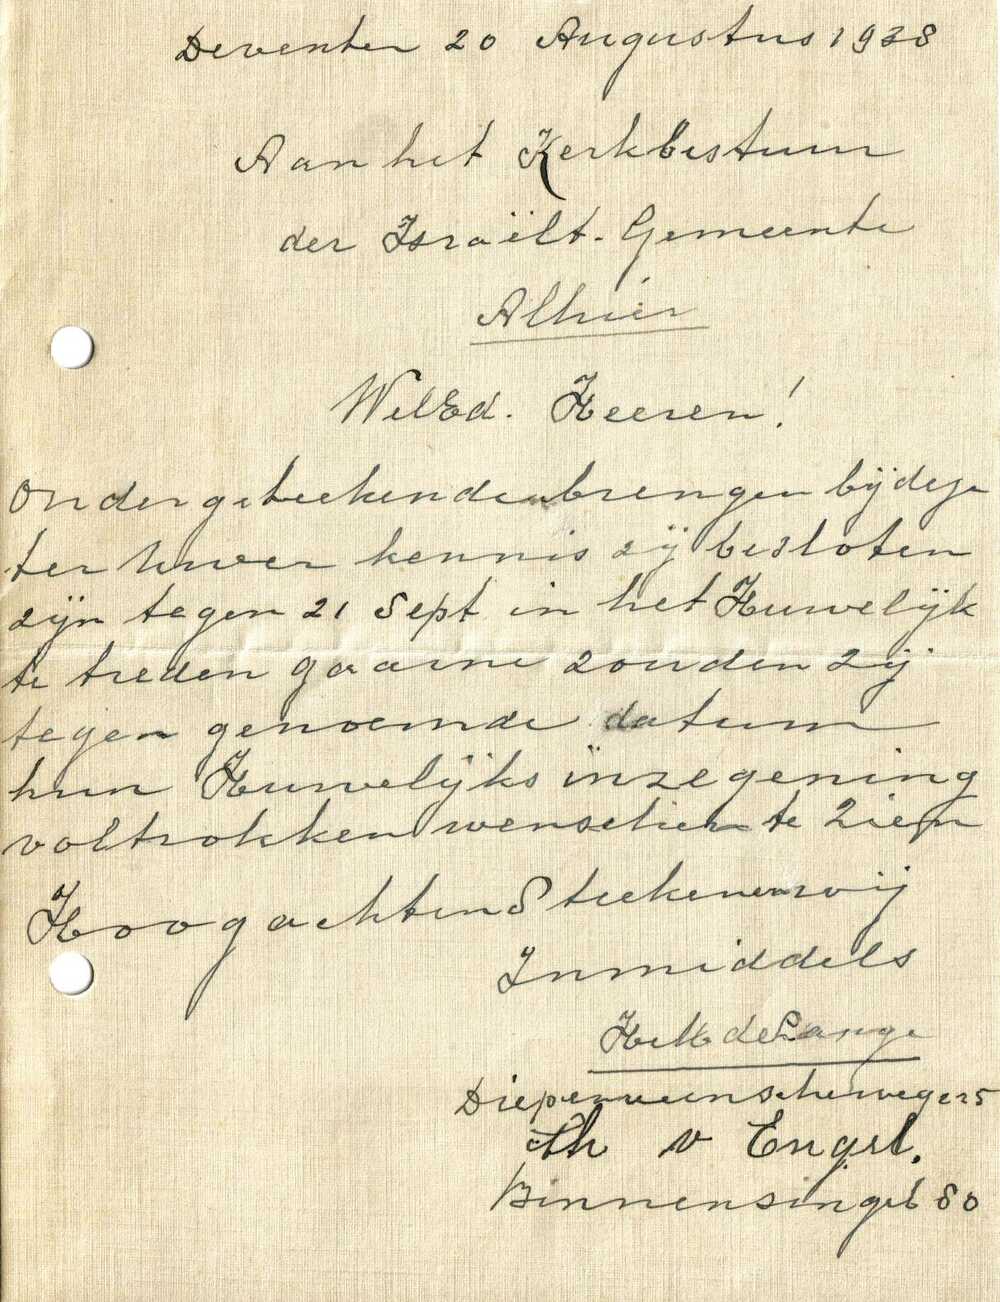 Deventer 20 Augustus 1938
Aan het Kerkbestuur
der Israëlt. Gemeente
Alhier
WelEd. Heeren!
Ondergeteekende brengen bij deze
ter Uwer kennis zij besloten
zijn tegen 21 Sept in het Huwelijk
te treden gaarne zouden zij
tegen genoemde datum
hun Huwelijks inzegening
voltrokken wenschen te zien
Hoogachtend teekenen wij
Inmiddels
de Lange
Diepenveenscheweg 25
Th v Engel.
Binnensingel 80